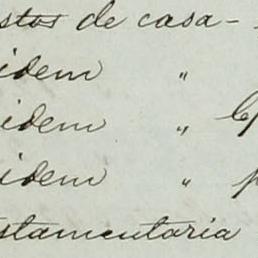 stos de casa-
idem "
idem "
idem "
stamentaria